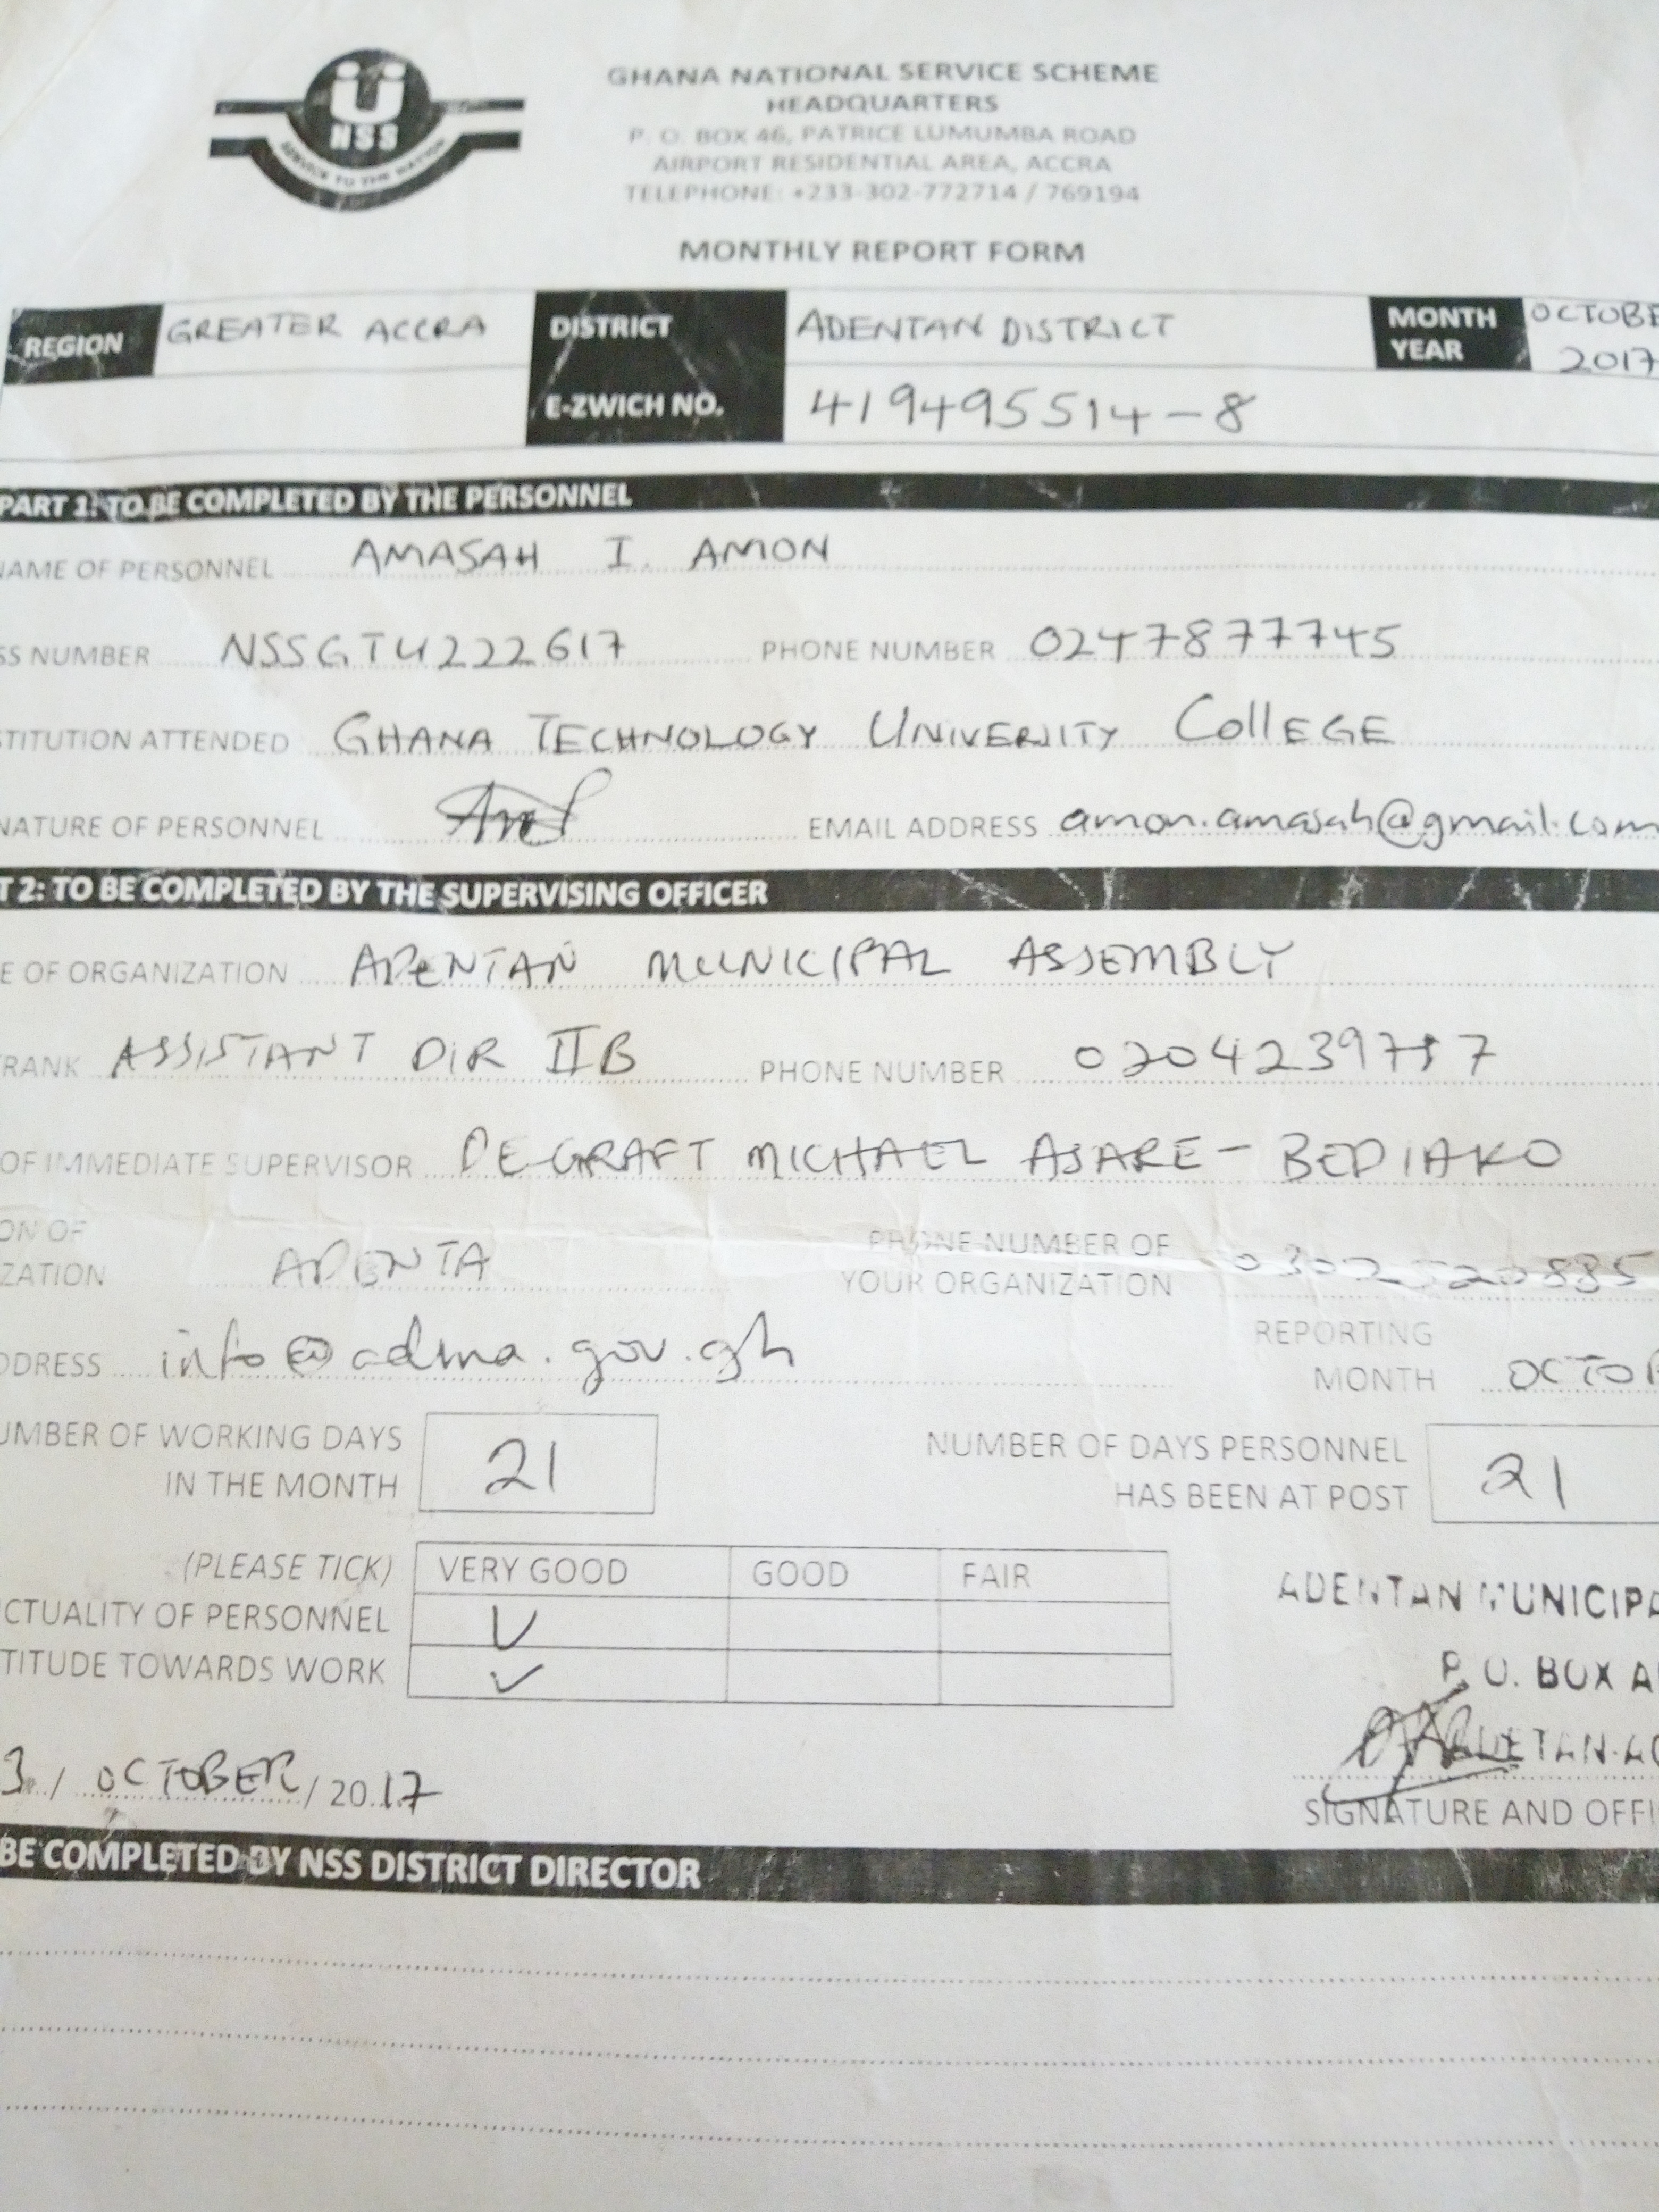 NSS
SERVICE TO THE NATION
GHANA NATIONAL SERVICE SCHEME
HEADQUARTERS
P. O. BOX 46, PATRICE LUMUMBA ROAD
AIRPORT RESIDENTIAL AREA, ACCRA
TELEPHONE: +233-302-772714 / 769194
MONTHLY REPORT FORM
REGION GREATER ACCRA DISTRICT ADENTAN DISTRICT MONTH OCTOBE
YEAR 2017
E-ZWICH NO. 419495514-8
PART 1: TO BE COMPLETED BY THE PERSONNEL
NAME OF PERSONNEL AMASAH I. AMON
SS NUMBER NSSGTU222617 PHONE NUMBER 0247877745
STITUTION ATTENDED GHANA TECHNOLOGY UNIVERITY CollEGE
NATURE OF PERSONNEL EMAIL ADDRESS amon.amasah@gmail.com
T 2: TO BE COMPLETED BY THE SUPERVISING OFFICER
E OF ORGANIZATION ADeNTAN MUNICIPAL ASSEMBLY
RANK ASSISTANT DIR IIB PHONE NUMBER
OF IMMEDIATE SUPERVISOR DE-GRAFT MICHAEL ASARE-BEDIAKO
ON OF
ZATION ADENTA PHONE NUMBER OF
YOUR ORGANIZATION
DDRESS info@adma.gov.gh REPORTING
MONTH OCTO
UMBER OF WORKING DAYS
IN THE MONTH 21 NUMBER OF DAYS PERSONNEL
HAS BEEN AT POST 21
(PLEASE TICK) VERY GOOD GOOD FAIR
CTUALITY OF PERSONNEL
TITUDE TOWARDS WORK
ADENTAN MUNICIPA
P. O. BOX A
3 / OCTOBER / 2017
SIGNATURE AND OFFI
BE COMPLETED BY NSS DISTRICT DIRECTOR